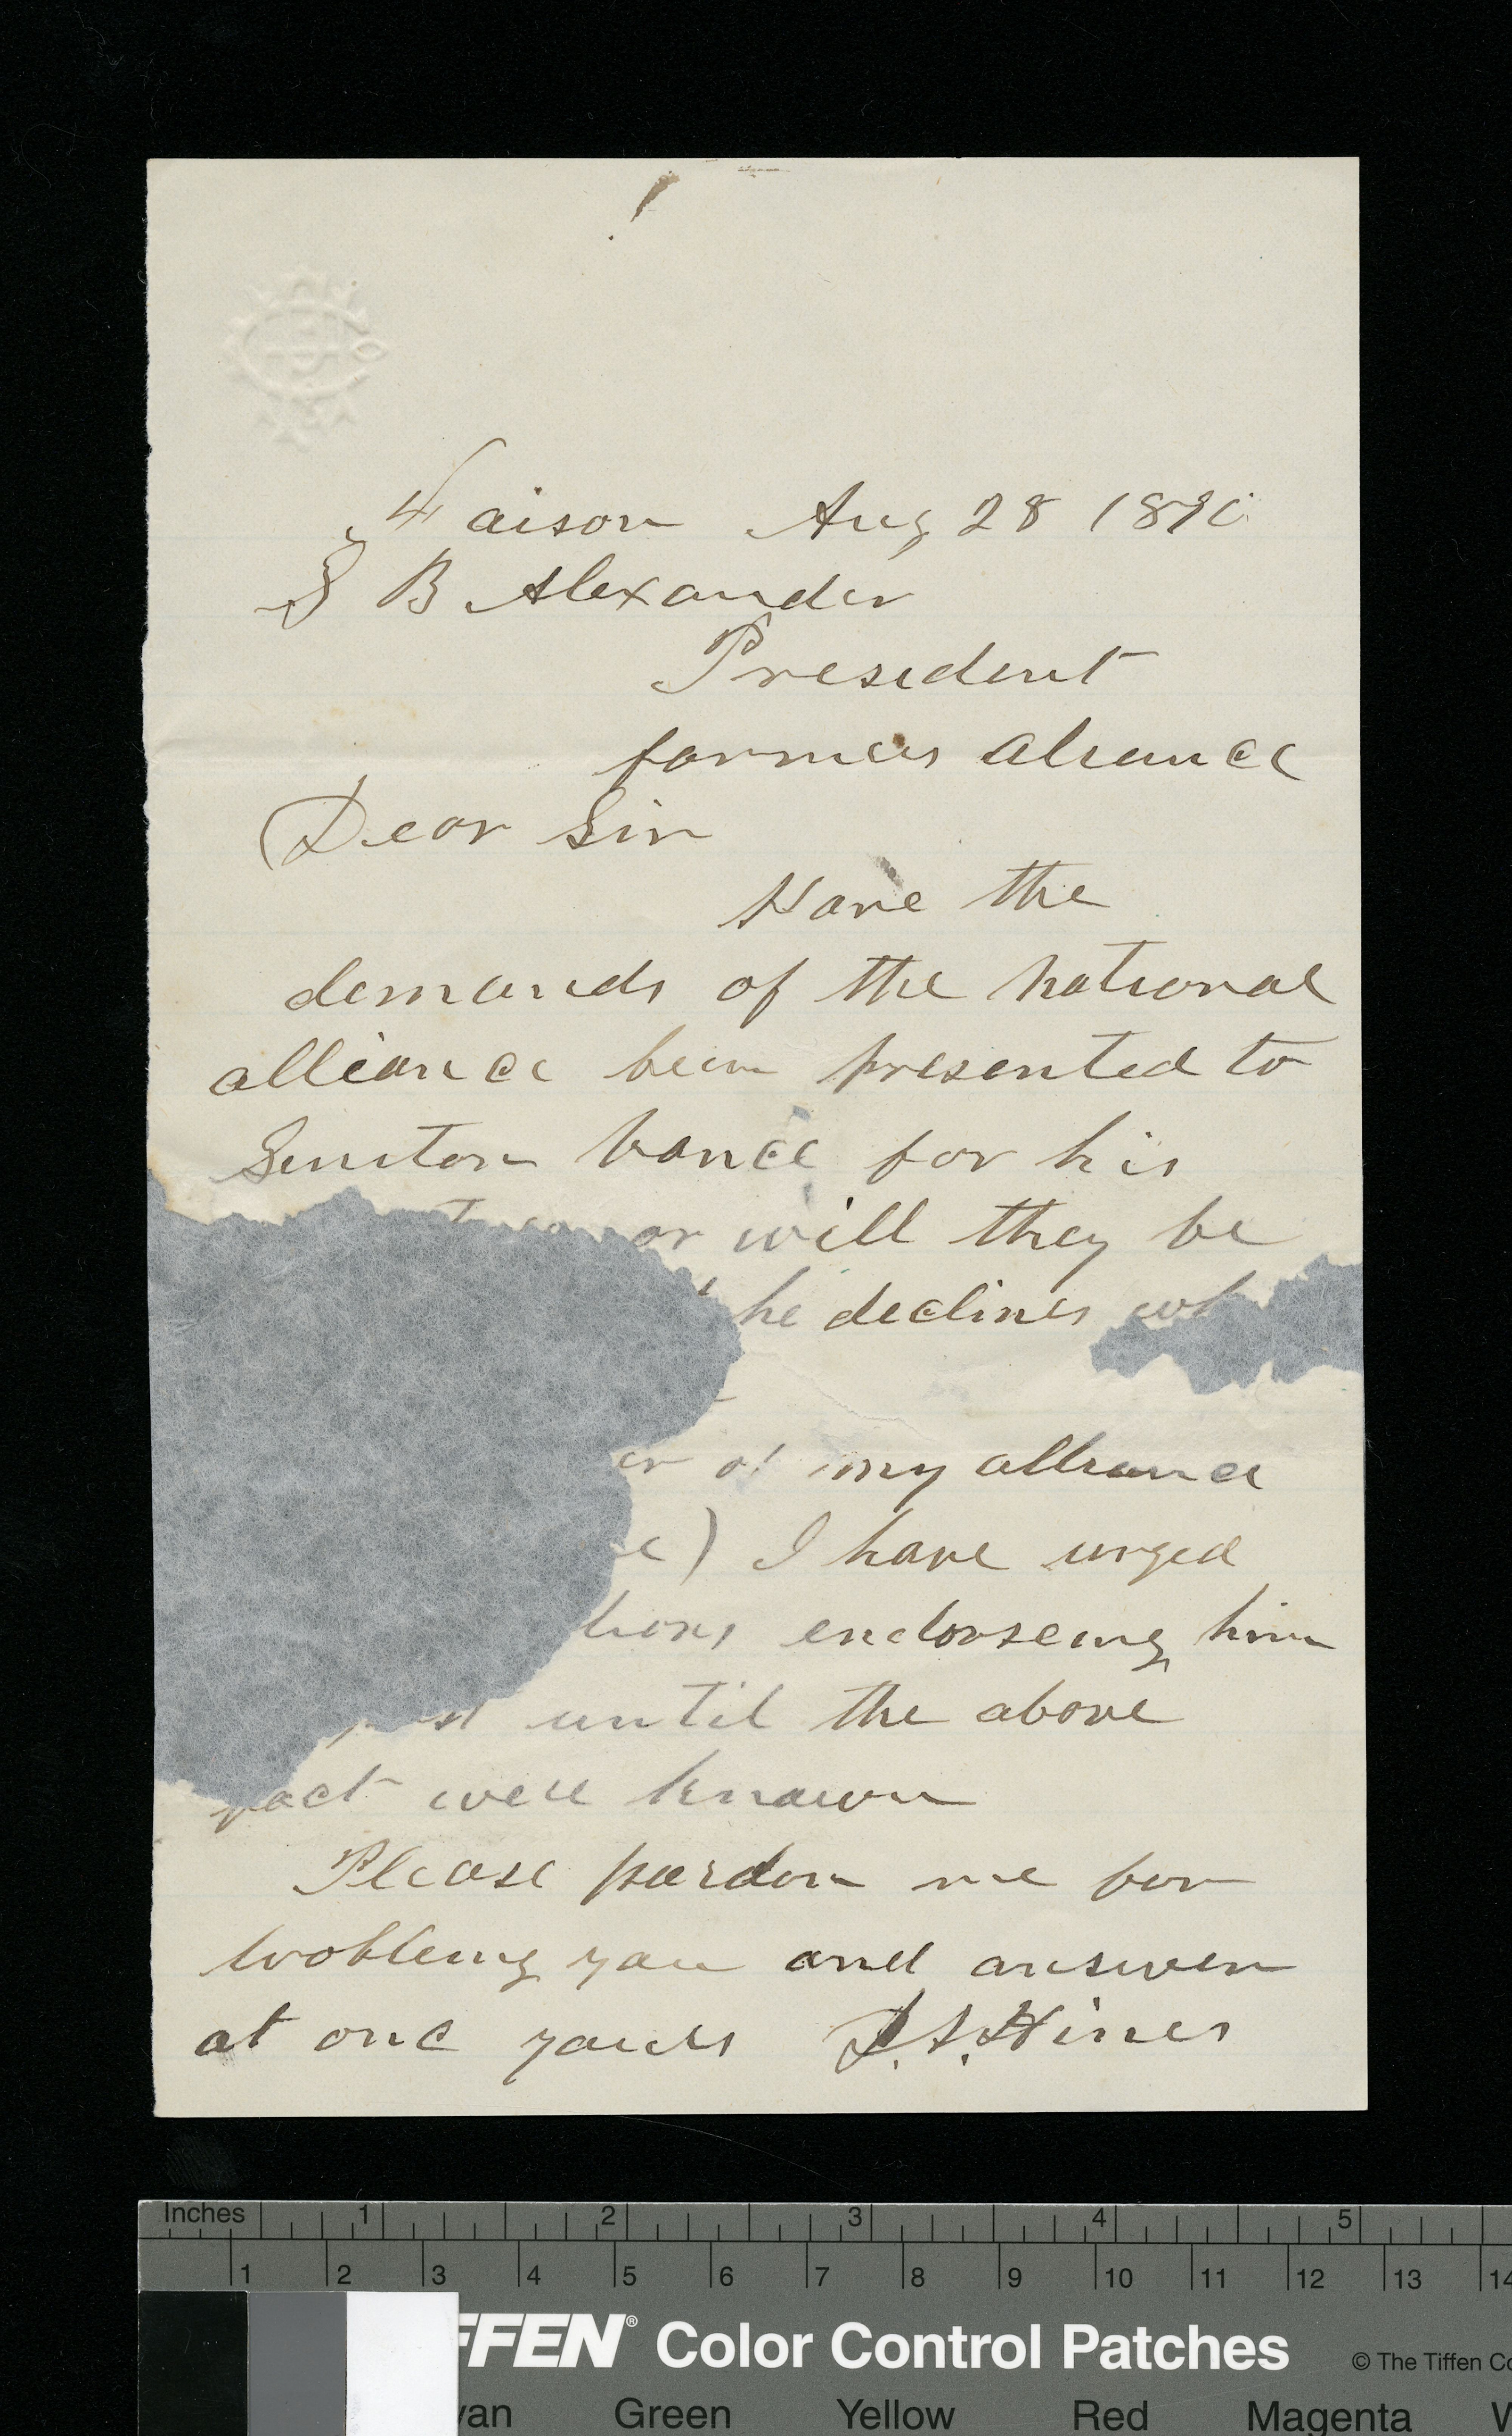 Faison Aug 28 1890
S B Alexander
President
farmers aliance
Dear Sir
Have the
demands of the national
alliance been presented to
Senitor Vance for his
or will they be
he declines
of my alliance
I have urged
endorseing him
until the above
fact were known
Please pardon me for
trobleing you and answer
at once yours J.A. Hines
Inches 1 2 3 4 5
1 2 3 4 5 6 7 8 9 10 11 12 13 14
FFEN® Color Control Patches © The Tiffen Co
yan Green Yellow Red Magenta W